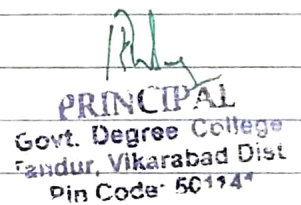 PRINCIPAL
Govt. Degree College
Tandur, Vikarabad Dist
Pin Code: 501141